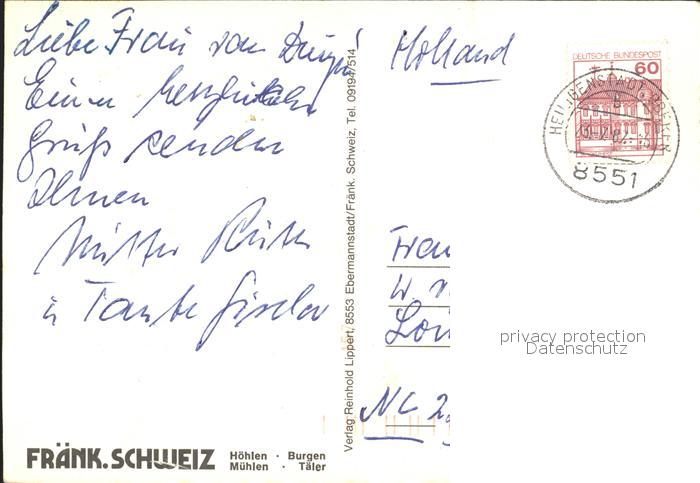 Liebe Frau van
Einen herzlichen
Gruß senden
Ihnen
Mutter
u Tante Gisela
FRÄNK. SCHWEIZ
Höhlen · Burgen
Mühlen · Täler
Verlag Reinhold Lippert, 8553 Ebermannstadt/Fränk. Schweiz, Tel. 09194/7514
Holland
DEUTSCHE BUNDESPOST
60
HEILIGENSTADT
b
8551
Frau
W. v
Loi
NL 2
privacy protection
Datenschutz